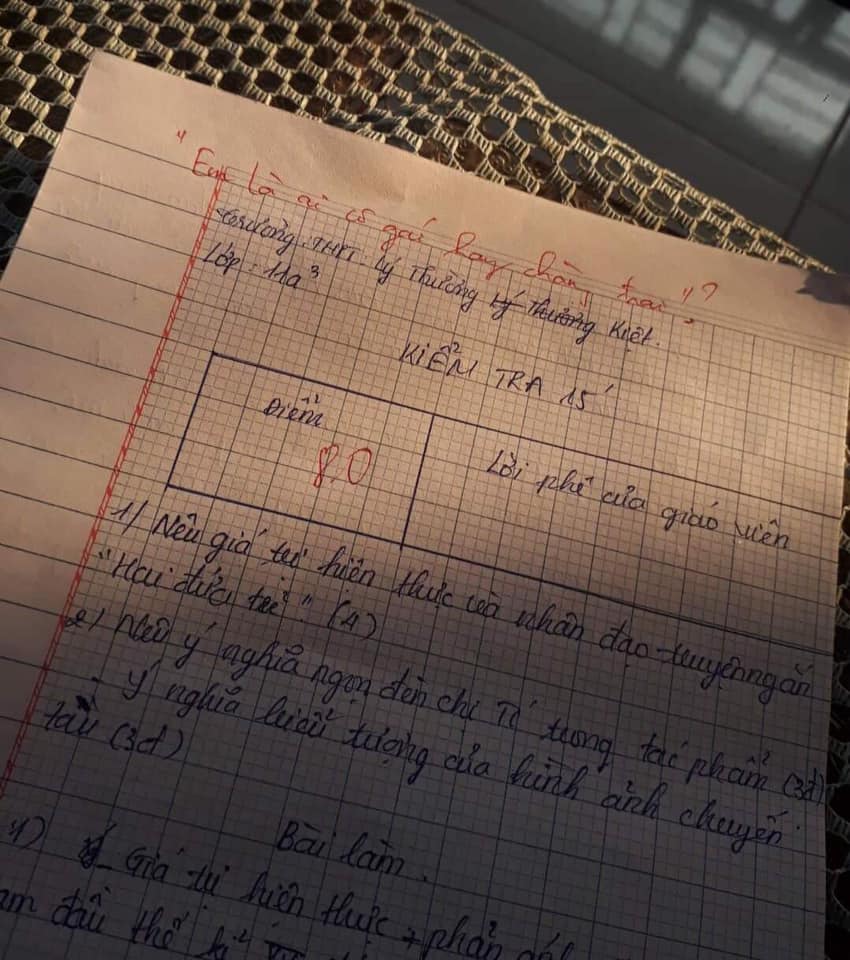 "Em là ai cô gái hay chàng trai"?
Trường: THPT Lý Thường Lý Thường Kiệt.
Lớp: 11a3
KIỂM TRA 15'
Điểm
8.0
Lời phê của giáo viên
1/ Nêu giá trị hiện thực và nhân đạo truyện ngắn
"Hai đứa trẻ". (4)
2/ Nêu ý nghĩa ngọn đèn chị Tí trong tác phẩm (3đ)
- Ý nghĩa biểu tượng của hình ảnh chuyến
tàu (3đ)
Bài làm.
1)
Giá trị hiện thực + phản
đầu thế kỉ